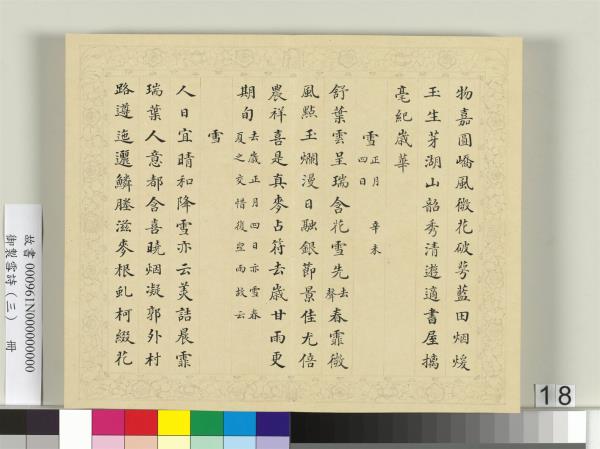 物嘉圓嶠風微花破萼藍田烟煖
玉生芽湖山韶秀清遊適書屋摛
毫紀歲華
雪 正月四日 辛未
舒葉雲呈瑞含花雪先去聲春霏微
風點玉爛漫日融銀節景佳尤倍
農祥喜是真麥占符去歲甘雨更
期旬 去歲正月四日亦雪春夏之交惜復望雨故云
雪
人日宜晴和降雪亦云美詰晨霏
瑞葉人意都含喜曉烟凝郭外村
路遵迤邐鱗塍滋麥根虬柯綴花
故書 000961N000000000
御製雪詩（三） 冊
18